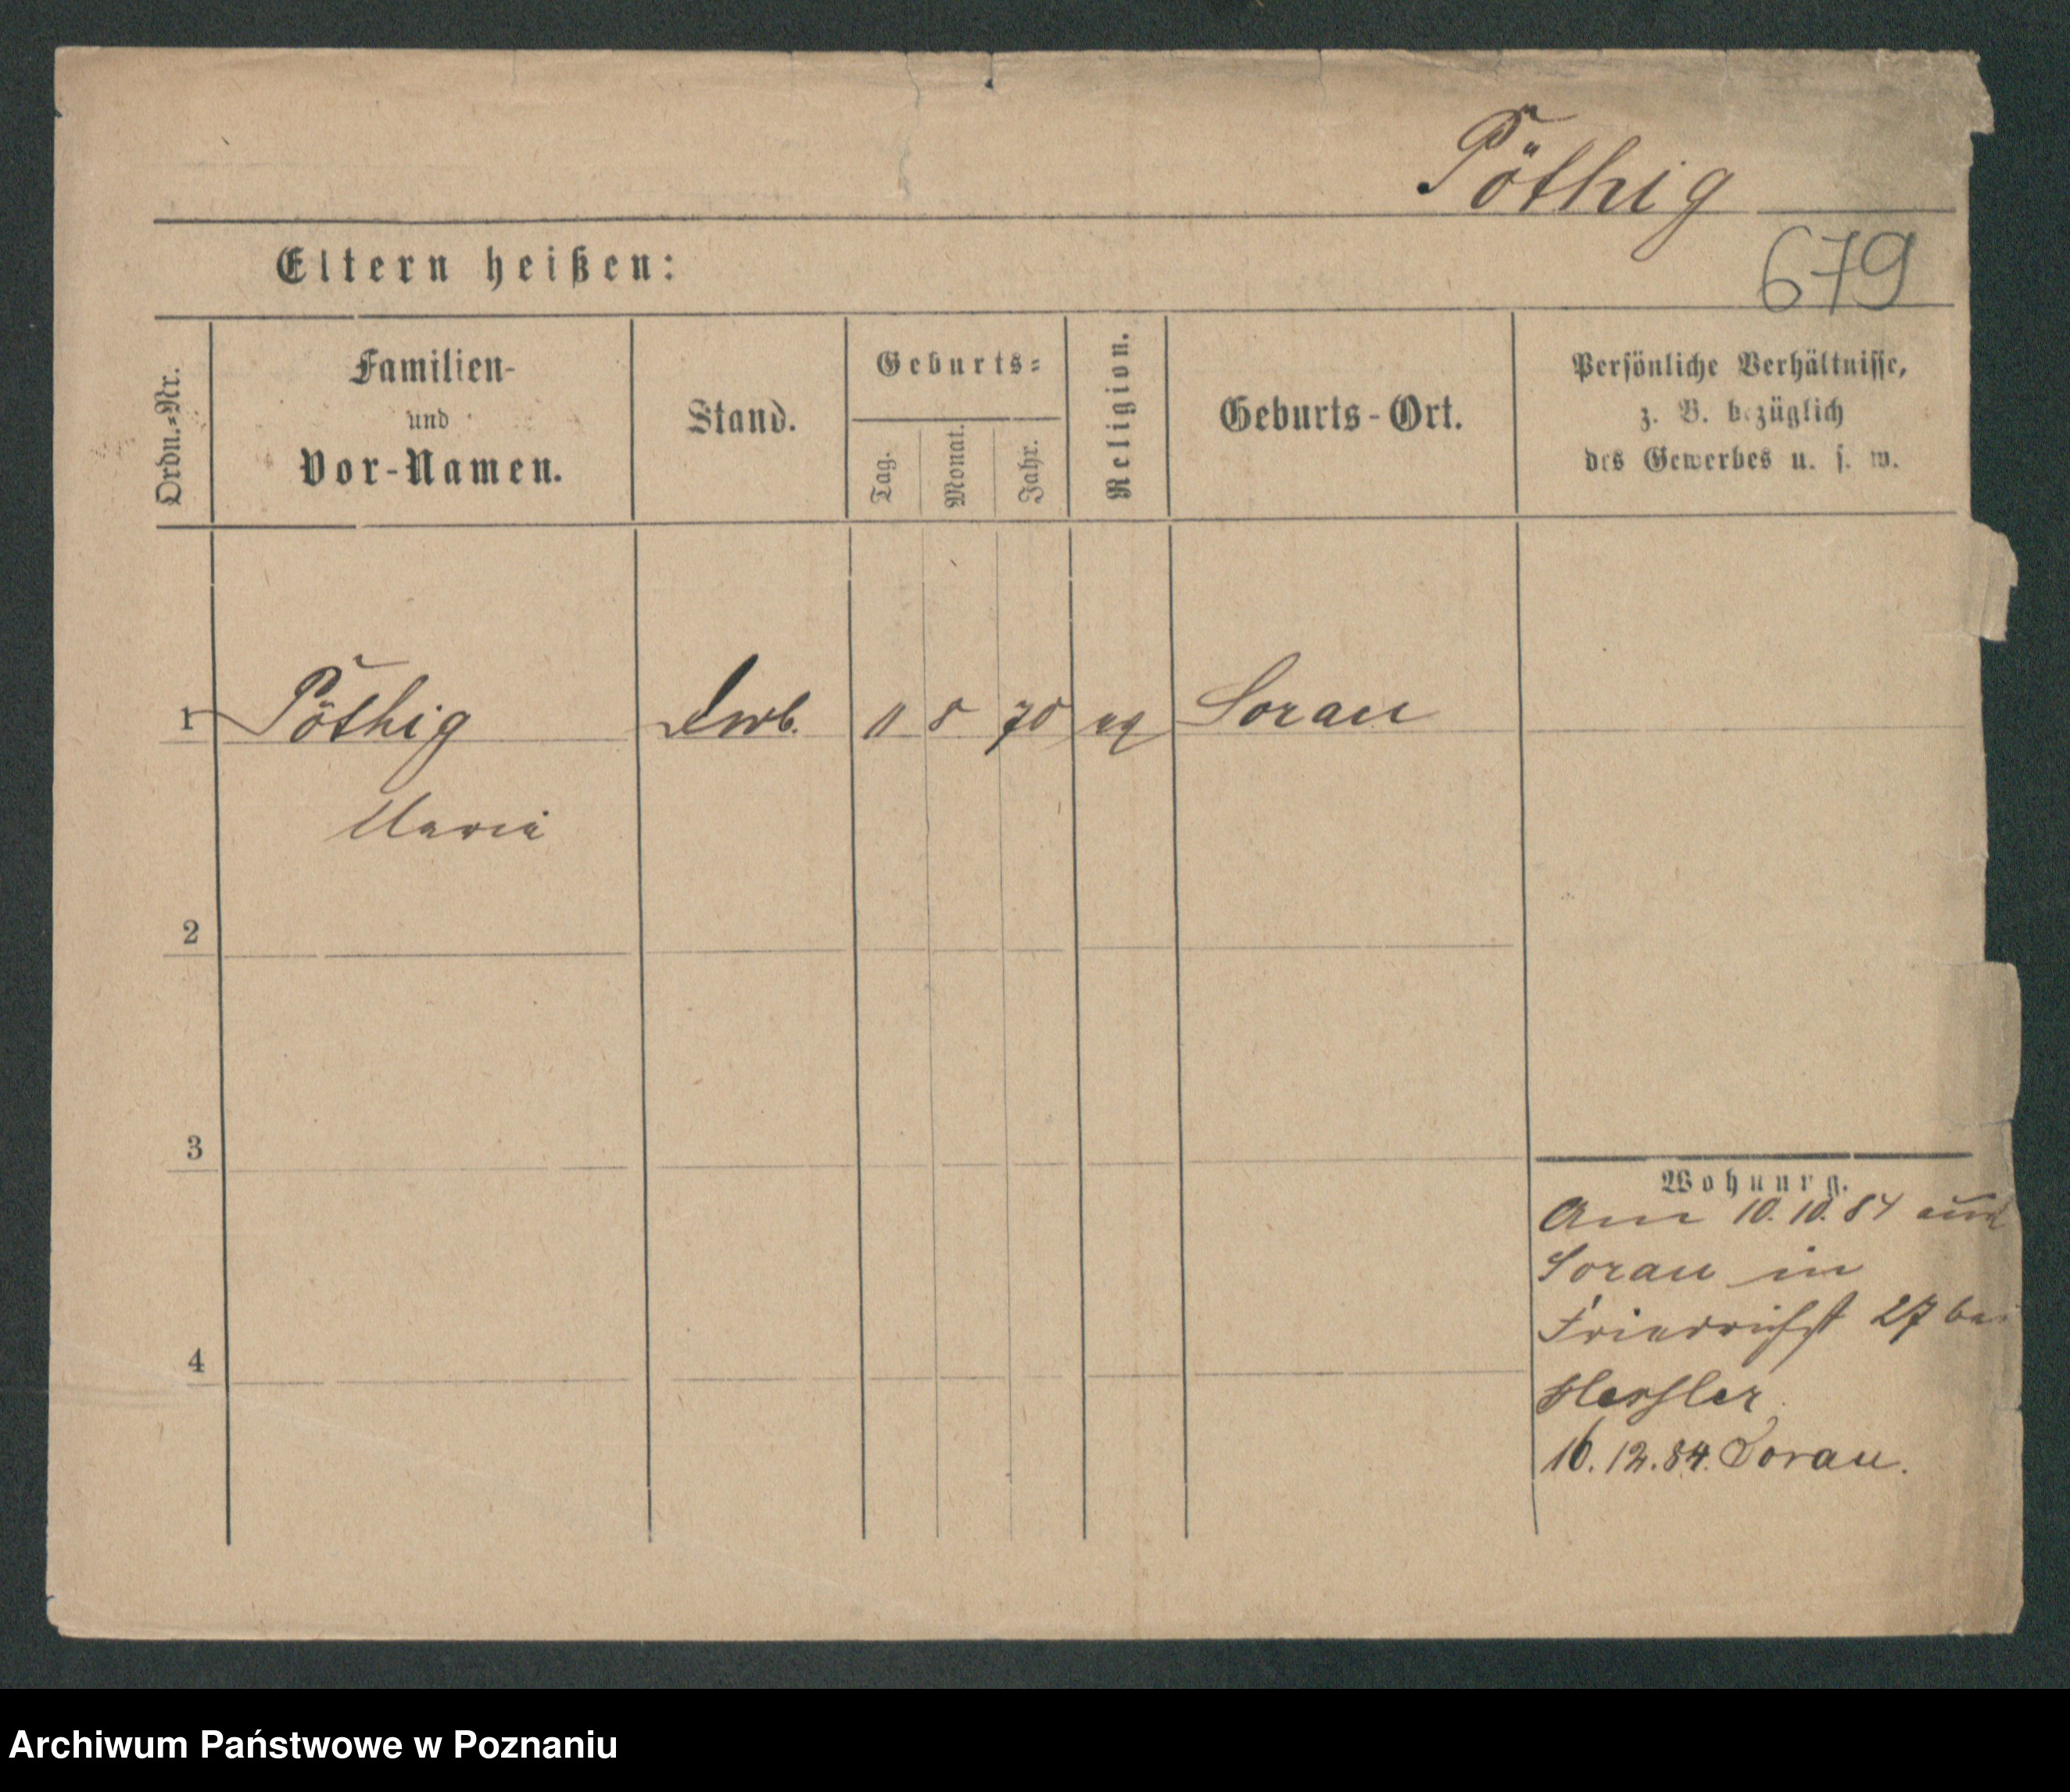 Pöthig
679
Eltern heißen:
Ordn.-Nr.
Familien-
und
Vor-Namen.
Stand.
Geburts-
Tag.
Monat.
Jahr.
Religion.
Geburts-Ort.
Persönliche Verhältnisse,
z. B. bezüglich
des Gewerbes u. s. w.
1 Pöthig 11 8 70 Sorau
Maria
2
3
4
Wohnung.
Am 10.10.84 aus
Sorau in
Friedrichst 27 bei
Hessler
16.12.84. Sorau.
Archiwum Państwowe w Poznaniu